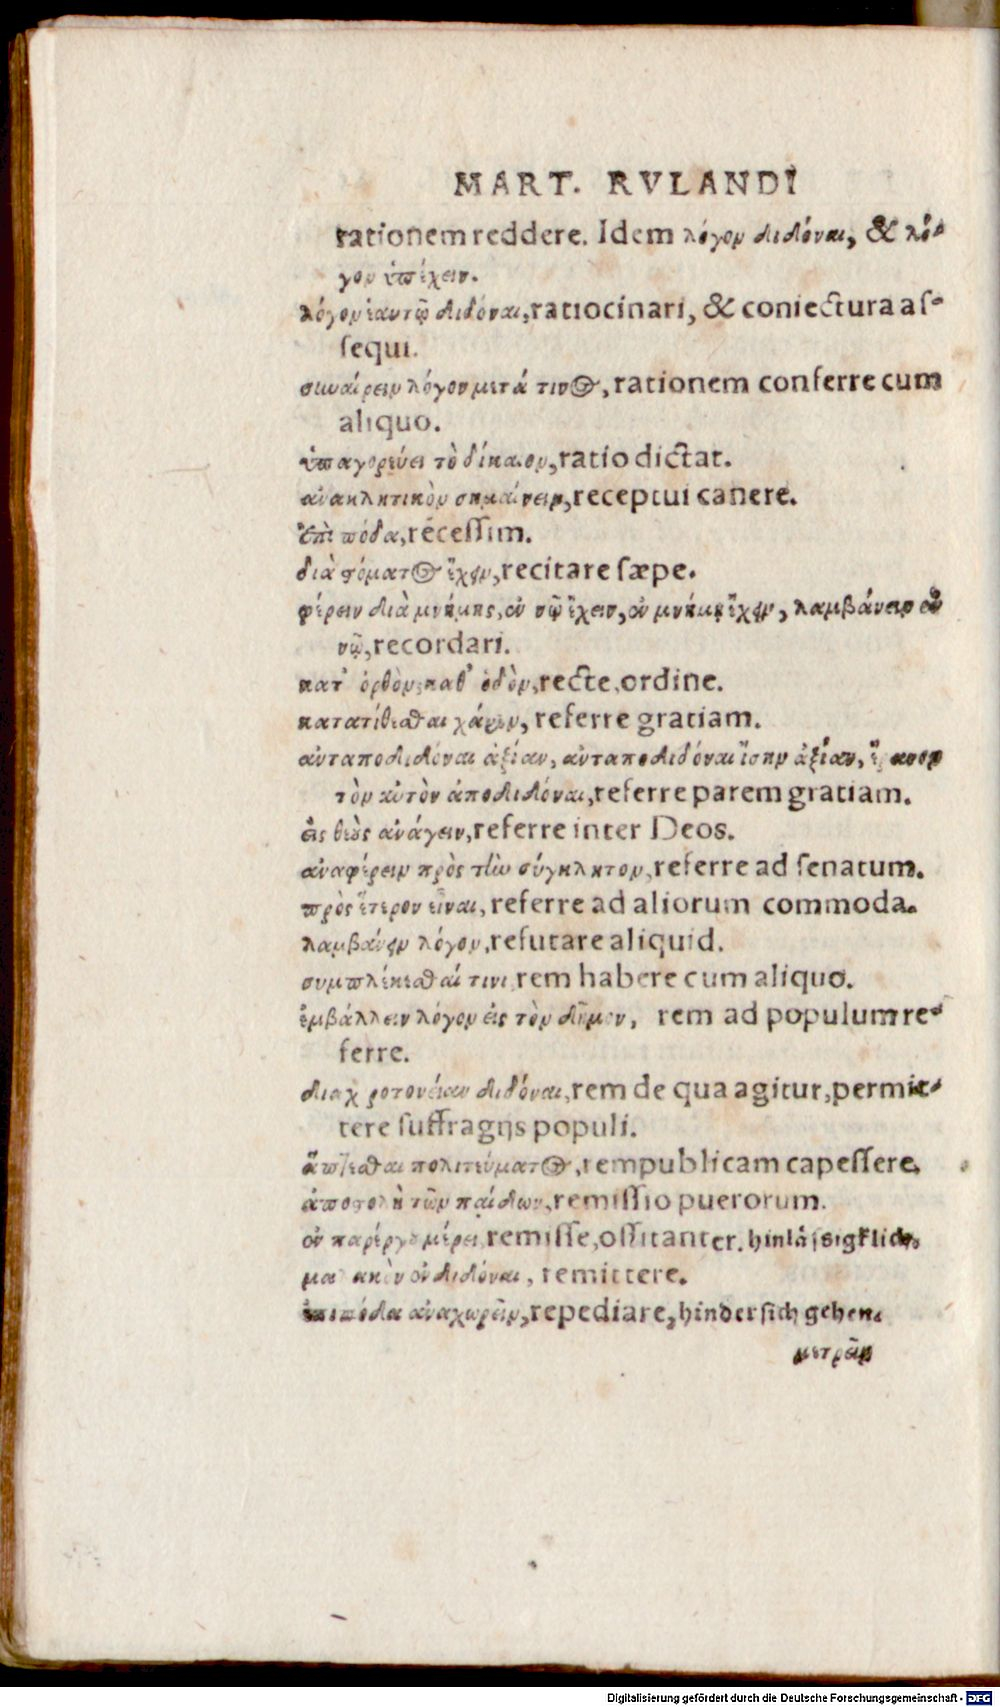 MART. RVLANDI
rationem reddere. Idem λόγον διδόναι, & λό-
γον ὑπέχειν.
λόγον ἑαυτῷ διδόναι, ratiocinari, & coniectura aſ-
ſequi.
σιωαίρειν λόγον μετά τινος, rationem conferre cum
aliquo.
ὑπαγορεύει τὸ δίκαιον, ratio dictat.
ἀνακλητικὸν σημαίνειν, receptui canere.
ἐπὶ πόδα, receſſim.
διὰ στόματος ἔχειν, recitare ſæpe.
φέρειν διὰ μνήμης, ἐν νῷ ἔχειν, ἐν μνήμῃ ἔχειν, λαμβάνειν ἐν
νῷ, recordari.
κατ' ὀρθὸν, καθ' ὁδὸν, recte, ordine.
κατατίθεσθαι χάριν, referre gratiam.
ἀνταποδιδόναι ἀξίαν, ἀνταποδιδόναι ἴσην ἀξίαν, ἔρανον
τὸν αὐτὸν ἀποδιδόναι, referre parem gratiam.
εἰς θεοὺς ἀνάγειν, referre inter Deos.
ἀναφέρειν πρὸς τὴν σύγκλητον, referre ad ſenatum.
πρὸς ἕτερον εἶναι, referre ad aliorum commoda.
λαμβάνειν λόγον, refutare aliquid.
συμπλέκεσθαί τινι rem habere cum aliquo.
ἐμβάλλειν λόγον εἰς τὸν δῆμον, rem ad populum re-
ferre.
διαχειροτονείαν διδόναι, rem de qua agitur, permit-
tere ſuffragijs populi.
ἅπτεσθαι πολιτεύματος, rempublicam capeſſere.
ἀποστολὴ τῶν παίδων, remiſſio puerorum.
ἐν παρέργου μέρει, remiſſe, oſſitanter. hinläſsigklich.
ἐνδιδόναι, remittere.
ἐπιπόδα ἀναχωρεῖν, repediare, hinderſich gehen.
μετρεῖν
Digitalisierung gefördert durch die Deutsche Forschungsgemeinschaft - DFG